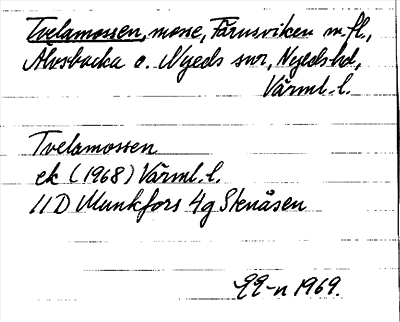 Tvelamossen, mosse, Tärnsviken m.fl.,
Älvsbacka o. Nyeds snr, Nyeds hd,
Värml. l.
Tvelamossen
ek (1968) Värml. l.
11D Munkfors 4g Stenåsen
1969.